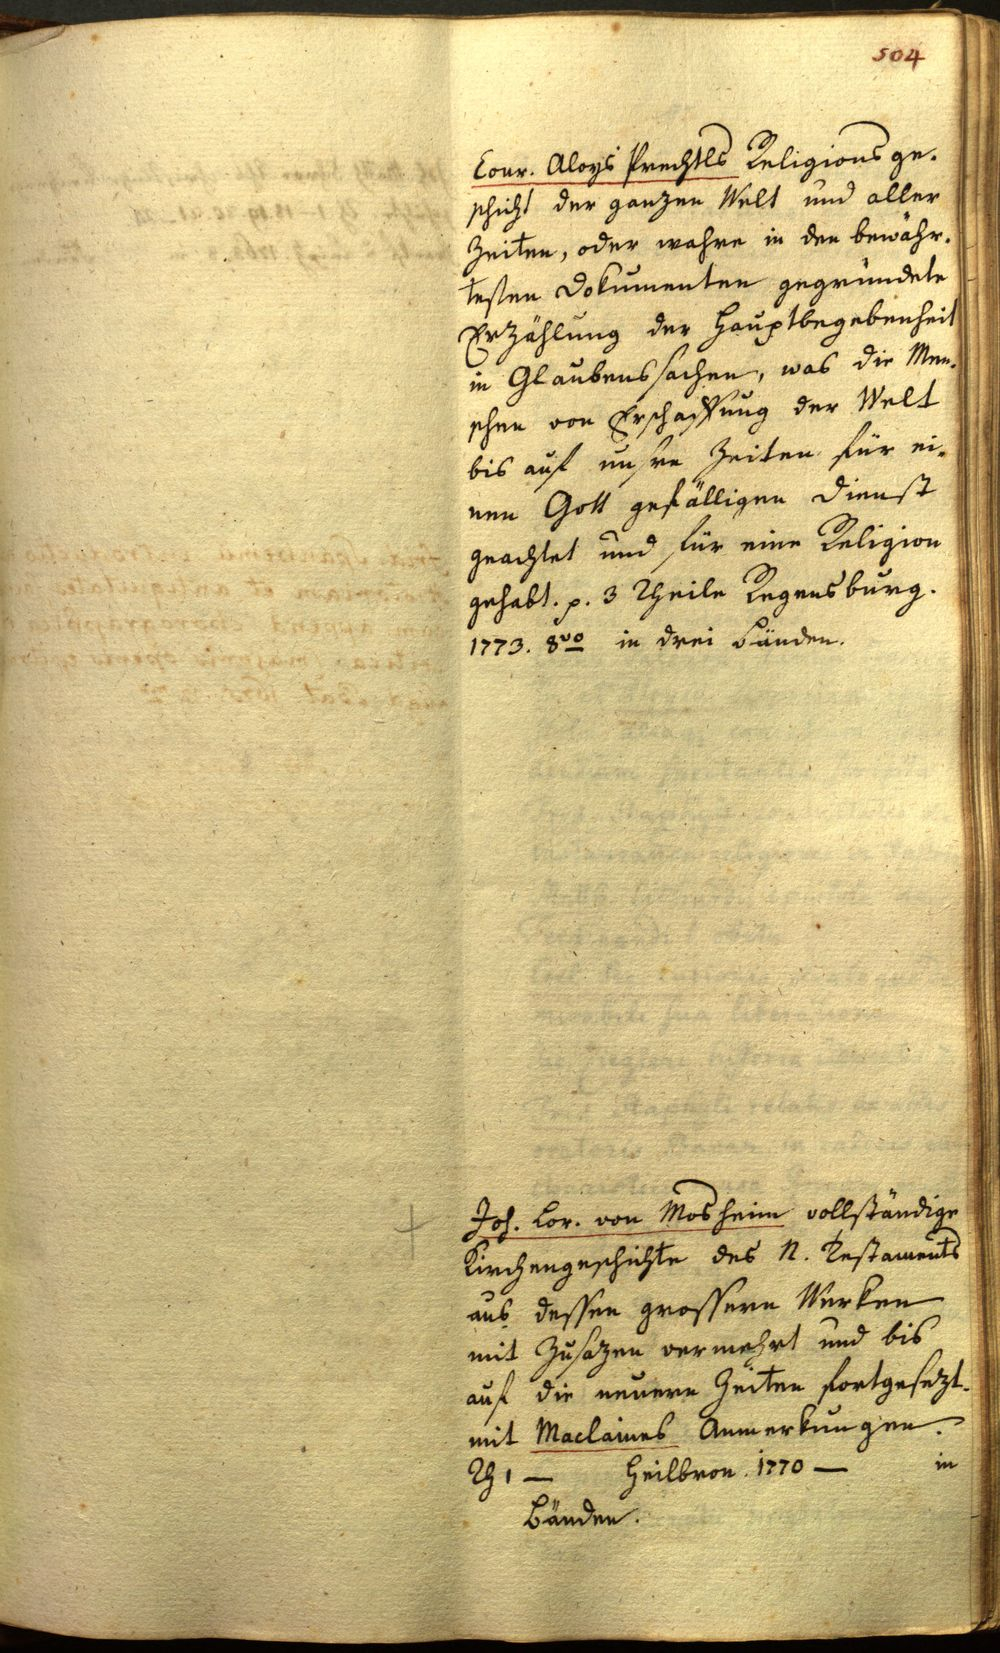 504
Conr. Aloys Prechtls Religions ge-
schicht der ganzen Welt und aller
Zeiten, oder wahre in den bewähr-
testen Dokumenten gegründete
Erzählung der Hauptbegebenheit
in Glaubenssachen, was die Men-
schen von Erschaffung der Welt
bis auf unsre Zeiten für ei-
nen Gott gefälligen Dienst
geachtet und für eine Religion
gehabt. p. 3 Theile Regensburg.
1773. 8vo in drei Bänden.
Joh. Lor. von Mosheim vollständige
Kirchengeschichte des N. Testaments
aus dessen grossern Werken
mit Zusäzen vermehrt und bis
auf die neuern Zeiten fortgesezt.
mit Maclaines Anmerkungen.
Th 1 — Heilbron. 1770 — in
Bänden.